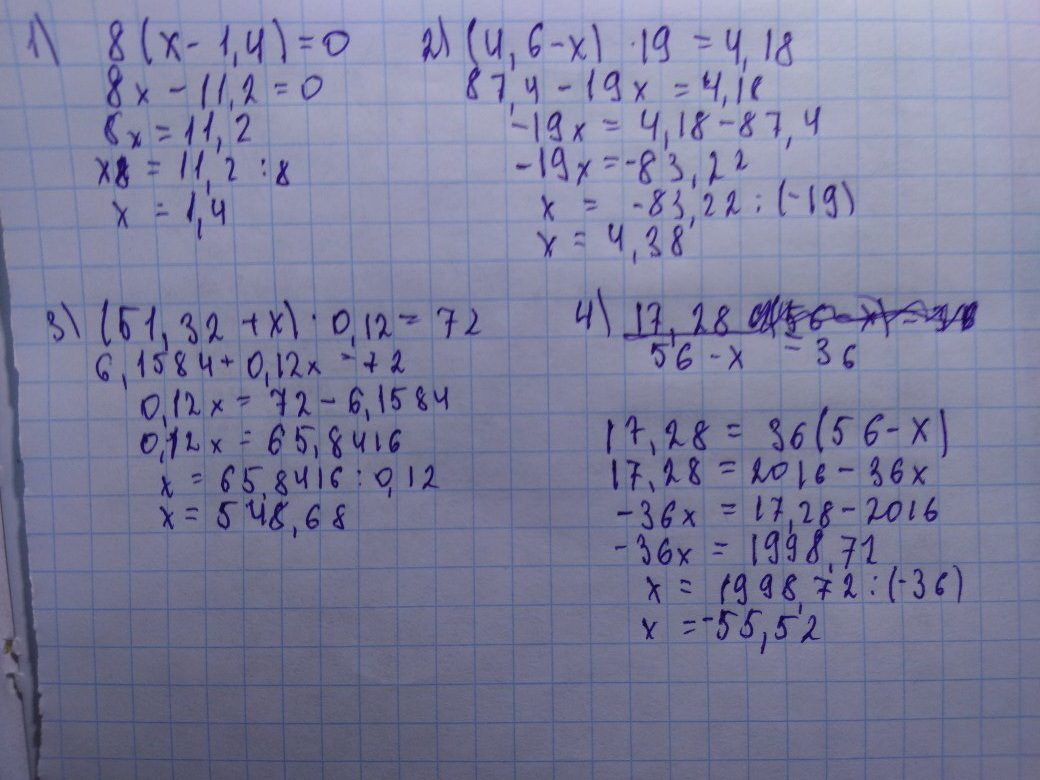 1) 8(x-1,4)=0
8x-11,2=0
8x=11,2
x=11,2:8
x=1,4
2) (4,6-x)·19=4,18
87,4-19x=4,18
-19x=4,18-87,4
-19x=-83,22
x=-83,22:(-19)
x=4,38
3) (51,32+x)·0,12=72
6,1584+0,12x=72
0,12x=72-6,1584
0,12x=65,8416
x=65,8416:0,12
x=548,68
4) 17,28
56-x=36
17,28=36(56-x)
17,28=2016-36x
-36x=17,28-2016
-36x=1998,72
x=1998,72:(-36)
x=-55,52